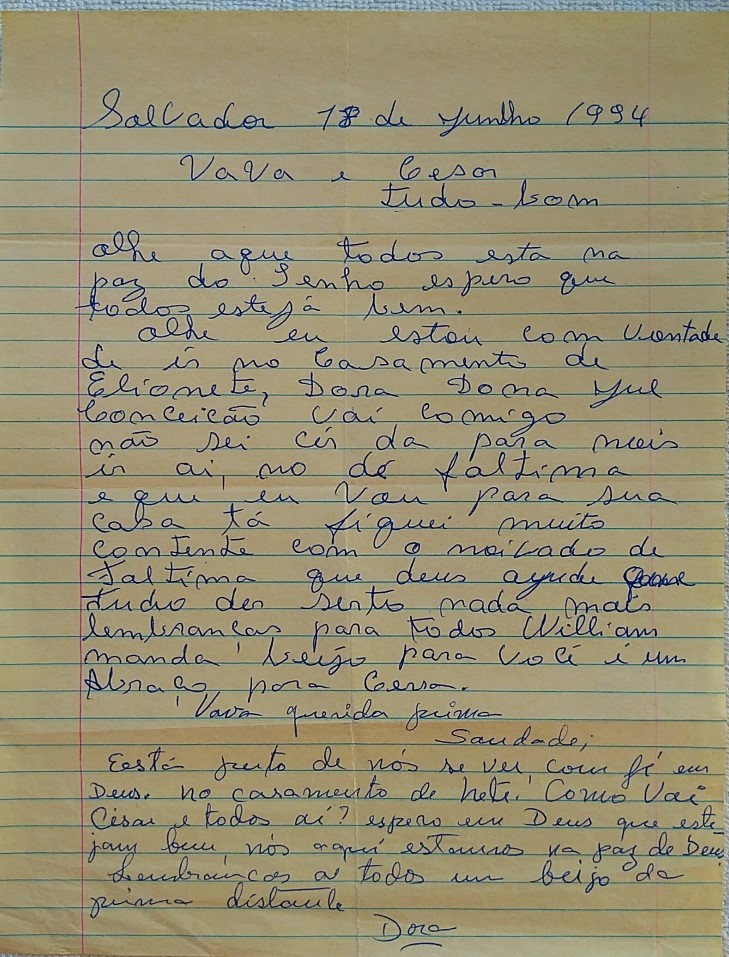 Salvador 18 de junho 1994
VaVa e Cesar
tudo-bom
olhe aque todos esta na
paz do Senho espero que
todos estejá bem.
olhe eu estou com vontade
de ir no Casamento de
Elionete, Dora Dona
Conceicão vai comigo
não sei cir da para mais
ir ai, no de faltima
e que eu Vou para sua
casa tá fiquei muito
contente com o noivado de
faltima que deus ayude
tudo der serto nada mais
lembrancas para todos William
manda beijo para você i um
Abraço para Cersa.
Vavá querida prima
Saudade,
Eestá perto de nós se ver, com fé em
Deus. no casamento de Nete. Como Vai
César e todos aí? espero em Deus que este-
jam bem, nós aqui estamos na paz de Deus
Lembrancas a todos um beijo da
prima distante
Dora